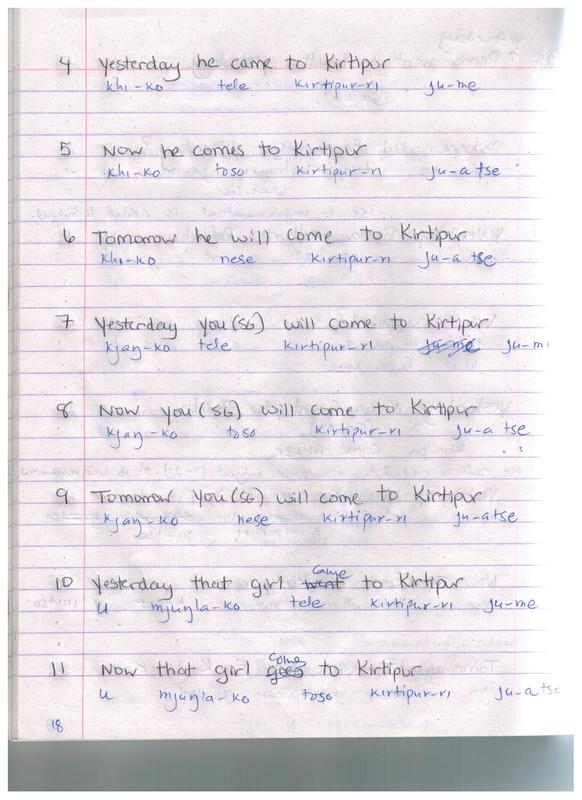 4 Yesterday he came to Kirtipur
khi-ko tele kirtipur-ri ju-me
5 Now he comes to Kirtipur
khi-ko toso kirtipur-ri ju-a tse
6 Tomorrow he will come to Kirtipur
khi-ko nese kirtipur-ri ju-a tse
7 Yesterday you (SG) will come to Kirtipur
kjaŋ-ko tele kirtipur-ri ju-me ju-mi
8 Now you (SG) will come to Kirtipur
kjaŋ-ko toso kirtipur-ri ju-a tse
9 Tomorrow you (SG) will come to Kirtipur
kjaŋ-ko nese kirtipur-ri ju-a tse
10 Yesterday that girl went came to Kirtipur
u mjuŋla-ko tele kirtipur-ri ju-me
11 Now that girl goes come to Kirtipur
u mjuŋla-ko toso kirtipur-ri ju-a tse
18